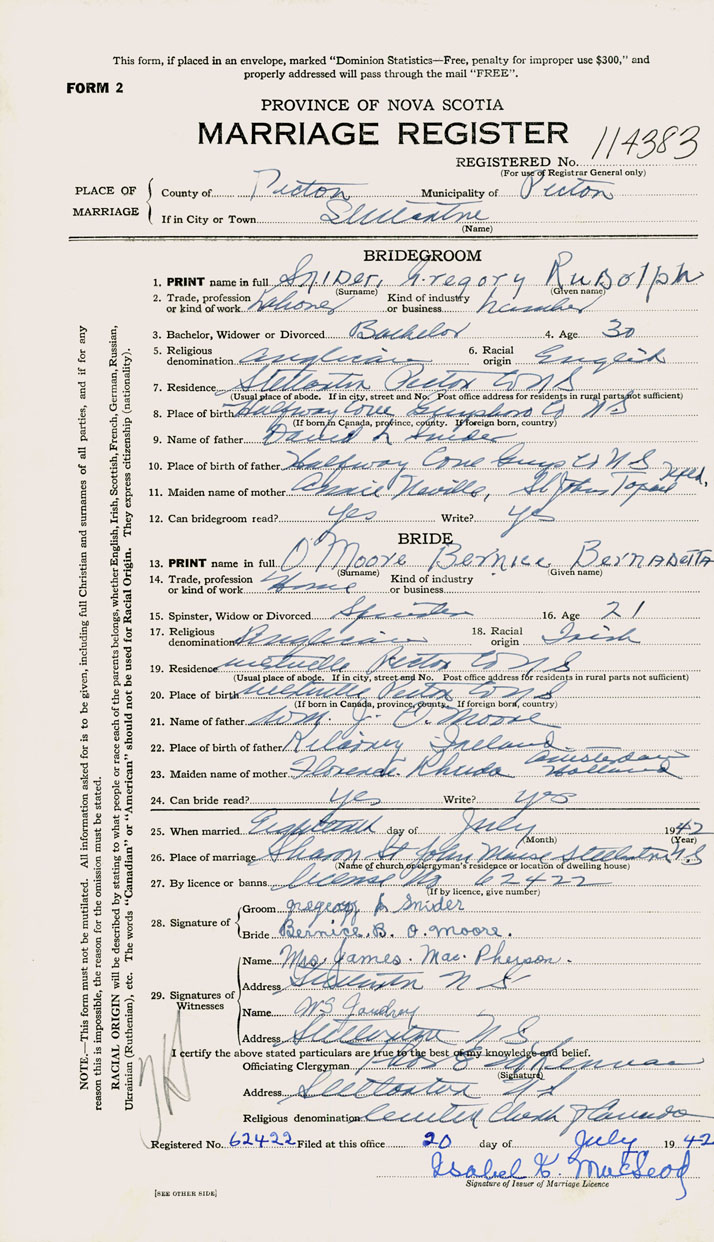 This form, if placed in an envelope, marked "Dominion Statistics—Free, penalty for improper use $300," and
properly addressed will pass through the mail "FREE".
FORM 2
PROVINCE OF NOVA SCOTIA
MARRIAGE REGISTER
REGISTERED No. 114383
(For use of Registrar General only)
PLACE OF MARRIAGE
County of Pictou Municipality of Pictou
If in City or Town Stellarton
(Name)
BRIDEGROOM
1. PRINT name in full SNIDER, Gregory RUDOLPH
(Surname) (Given name)
2. Trade, profession or kind of work Laborer Kind of industry or business
3. Bachelor, Widower or Divorced Bachelor 4. Age 30
5. Religious denomination Anglican 6. Racial origin English
7. Residence Stellarton Pictou Co N S
(Usual place of abode. If in city, street and No. Post office address for residents in rural parts not sufficient)
8. Place of birth Halfway Cove Guysboro Co N.S
(If born in Canada, province, county. If foreign born, country)
9. Name of father Daniel L Snider
10. Place of birth of father Halfway Cove Guys Co N S
11. Maiden name of mother Annie Neville, St Johns Nfld.
12. Can bridegroom read? yes Write? yes
BRIDE
13. PRINT name in full O'Moore Bernice BERNADETTA
(Surname) (Given name)
14. Trade, profession or kind of work Home Kind of industry or business
15. Spinster, Widow or Divorced Spinster 16. Age 21
17. Religious denomination Anglican 18. Racial origin Irish
19. Residence Westville Pictou Co N S
(Usual place of abode. If in city, street and No. Post office address for residents in rural parts not sufficient)
20. Place of birth Westville Pictou Co N S
(If born in Canada, province, county. If foreign born, country)
21. Name of father Wm. J. O'Moore
22. Place of birth of father Kilarney Ireland
23. Maiden name of mother Florence Rhuda Amsterdam Holland
24. Can bride read? yes Write? yes
25. When married Eighteenth day of July 1942
(Month) (Year)
26. Place of marriage Sharon St John Manse Stellarton N.S
(Name of church or clergyman's residence or location of dwelling house)
27. By licence or banns license No 62422
(If by licence, give number)
28. Signature of
Groom Gregeory R Snider
Bride Bernice. B. O. Moore.
29. Signatures of Witnesses
Name Mrs James. Mac. Pherson.
Address Stellarton N S
Name WS
Address Stellarton N S
I certify the above stated particulars are true to the best of my knowledge and belief.
Officiating Clergyman
(Signature)
Address Stellarton N S
Religious denomination United Church of Canada
Registered No. 62422 Filed at this office 20 day of July 1942
Isabel K. MacLeod
Signature of Issuer of Marriage Licence
[SEE OTHER SIDE]
NOTE.—This form must not be mutilated. All information asked for is to be given, including full Christian and surnames of all parties, and if for any
reason this is impossible, the reason for the omission must be stated.
RACIAL ORIGIN will be described by stating to what people or race each of the parents belongs, whether English, Irish, Scottish, French, German, Russian,
Ukrainian (Ruthenian), etc. The words "Canadian" or "American" should not be used for Racial Origin. They express citizenship (nationality).